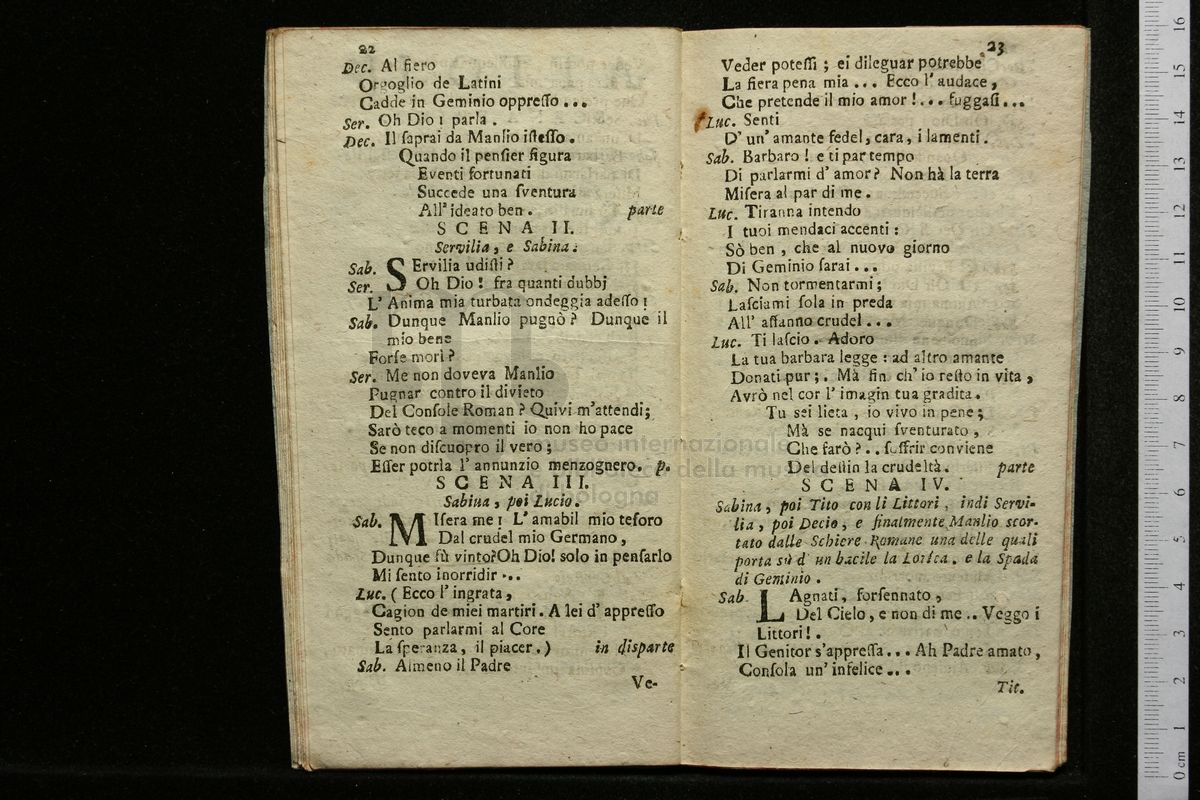 22
Dec. Al fiero
Orgoglio de Latini
Cadde in Geminio oppreſſo...
Ser. Oh Dio! parla.
Dec. Il ſaprai da Manlio iſteſſo.
Quando il penſier figura
Eventi fortunati
Succede una ſventura
All' ideato ben. parte
SCENA II.
Servilia, e Sabina.
Sab. SErvilia udiſti?
Ser. Oh Dio! fra quanti dubbj
L' Anima mia turbata ondeggia adeſſo!
Sab. Dunque Manlio pugnò? Dunque il
mio bene
Forſe morì?
Ser. Me non doveva Manlio
Pugnar contro il divieto
Del Conſole Roman? Quivi m'attendi;
Sarò teco a momenti io non ho pace
Se non diſcuopro il vero;
Eſſer potrìa l' annunzio menzognero. p.
SCENA III.
Sabina, poi Lucio.
Sab. MIſera me! L' amabil mio teſoro
Dal crudel mio Germano,
Dunque fù vinto? Oh Dio! solo in penſarlo
Mi ſento inorridir...
Luc. (Ecco l' ingrata,
Cagion de miei martiri. A lei d' appreſſo
Sento parlarmi al Core
La ſperanza, il piacer.) in diſparte
Sab. Almeno il Padre
Ve-
23
Veder poteſſi; ei dileguar potrebbe
La fiera pena mia... Ecco l' audace,
Che pretende il mio amor!... fuggaſi...
Luc. Senti
D' un' amante fedel, cara, i lamenti.
Sab. Barbaro! e ti par tempo
Di parlarmi d' amor? Non hà la terra
Miſera al par di me.
Luc. Tiranna intendo
I tuoi mendaci accenti:
Sò ben, che al nuovo giorno
Di Geminio ſarai...
Sab. Non tormentarmi;
Laſciami ſola in preda
All' affanno crudel...
Luc. Ti laſcio. Adoro
La tua barbara legge: ad altro amante
Donati pur;. Mà fin ch' io reſto in vita,
Avrò nel cor l' imagin tua gradita.
Tu sei lieta, io vivo in pene;
Mà se nacqui ſventurato,
Che farò?.. ſoffrir conviene
Del deſtin la crudeltà. parte
SCENA IV.
Sabina, poi Tito con li Littori, indi Servi-
lia, poi Decio, e finalmente Manlio scor-
tato dalle Schiere Romane una delle quali
porta sù d' un bacile la Lorica, e la Spada
di Geminio.
Sab. LAgnati, forſennato,
Del Cielo, e non di me.. Veggo i
Littori!.
Il Genitor s'appreſſa... Ah Padre amato,
Conſola un' infelice...
Tit.
museo internazionale
e biblioteca della musica
di bologna
0 cm 1 2 3 4 5 6 7 8 9 10 11 12 13 14 15 16